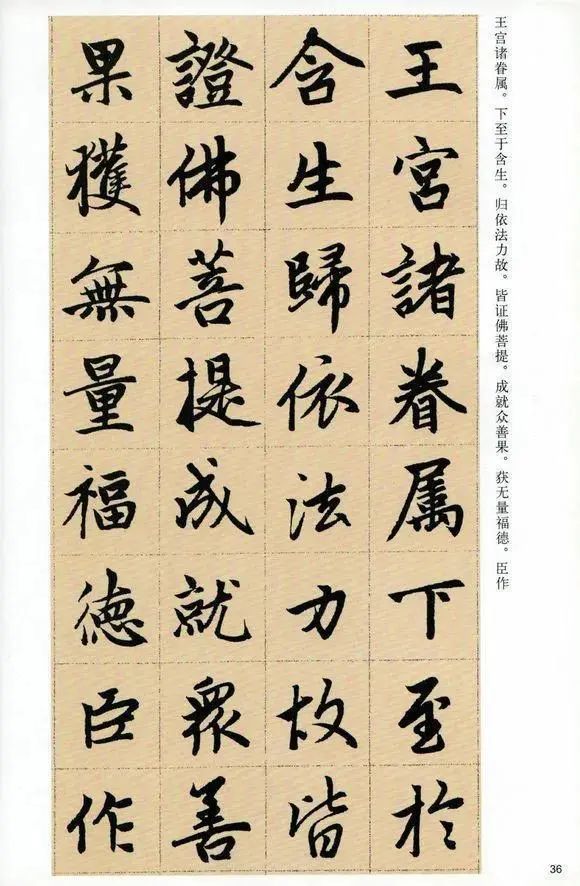 王宫诸眷属。下至于含生。归依法力故。皆证佛菩提。成就众善果。获无量福德。臣作
王宮諸眷属下至於
含生歸依法力故皆
證佛菩提成就眾善
果獲無量福德臣作
36